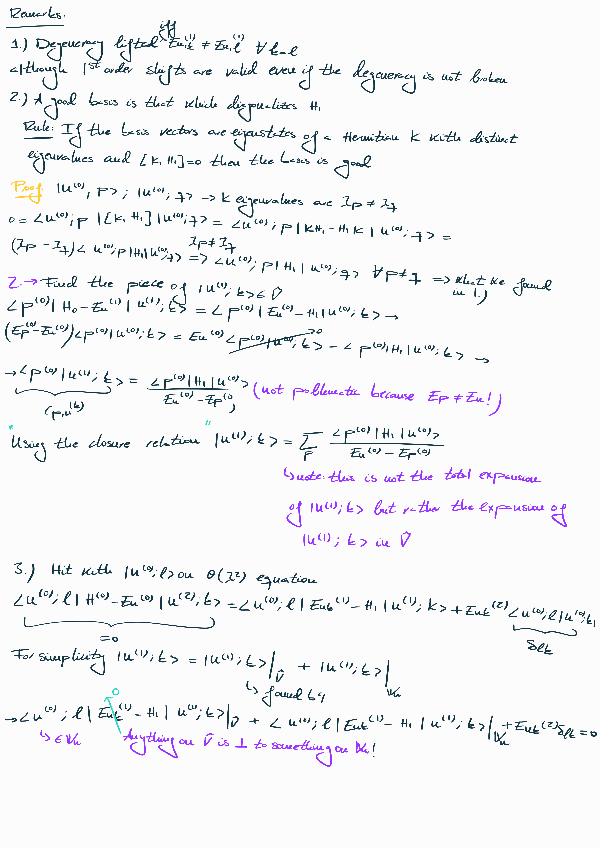 Remarks:
1.) Degeneracy lifted iff Enk^(1) ≠ Enl^(1) ∀ k≠l
although 1st order shifts are valid even if the degeneracy is not broken
2.) A good basis is that which diagonalizes H₁
Rule: If the basis vectors are eigenstates of a Hermitian K with distinct
eigenvalues and [K, H₁]=0 then the basis is good
Proof: |n^(0), p>; |n^(0); q> → K eigenvalues are λp ≠ λq
0 = <n^(0); p | [K, H₁] | n^(0); q> = <n^(0); p | KH₁ - H₁K | n^(0); q> =
(λp - λq) <n^(0); p|H₁|n^(0); q> λp≠λq => <n^(0); p|H₁|n^(0); q> ∀ p≠q => what we found in 1.)
2. → Find the piece of |n^(1); k> ∈ V̂
<p^(0)| H₀ - En^(1) | n^(1); k> = <p^(0)| En^(0) - H₁ | n^(0); k> →
(Ep^(0) - En^(0)) <p^(0)|n^(1); k> = En^(0) <p^(0)|n^(0); k> 0 - <p^(0)|H₁|n^(0); k> →
→ <p^(0)|n^(1); k> = <p^(0)|H₁|n^(0)> / En^(0) - Ep^(0) (not problematic because Ep ≠ En!)
Cp,n^(k)
"Using the closure relation" |n^(1); k> = Σ_p <p^(0)|H₁|n^(0)> / En^(0) - Ep^(0)
↳ note: this is not the total expansion
of |n^(1); k> but rather the expansion of
|n^(1); k> in V̂
3.) Hit with |n^(0); l> on θ(λ²) equation
<n^(0); l | H^(0) - En^(0) | n^(2); k> = <n^(0); l | Enk^(1) - H₁ | n^(1); k> + Enk^(2) <n^(0); l|n^(0); k>
=0 δlk
For simplicity |n^(1); k> = |n^(1); k>|_V̂ + |n^(1); k>|_Vn
↳ found by
→ <n^(0); l | Enk^(1) 0 - H₁ | n^(1); k>|_V̂ + <n^(0); l | Enk^(1) - H₁ | n^(1); k>|_Vn + Enk^(2) δlk = 0
↳ ∈ Vn Anything on V̂ is ⊥ to something on Vn!